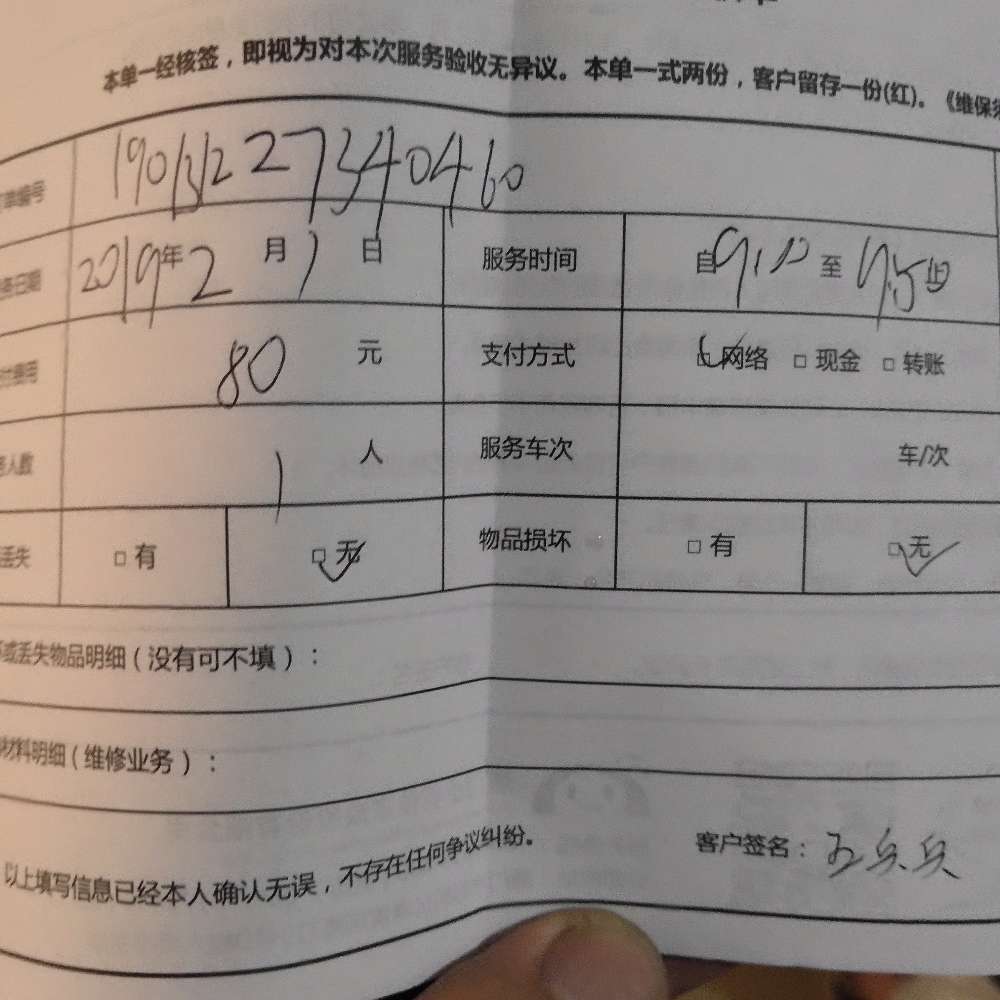 本单一经核签，即视为对本次服务验收无异议。本单一式两份，客户留存一份(红)。《维保
单编号 190131227340460
务日期 2019年2月1日 服务时间 自9:10至9:50止
付费用 80元 支付方式 网络 □ 现金 □ 转账
人数 1人 服务车次 车/次
丢失 □ 有 □ 无 物品损坏 □ 有 □ 无
或丢失物品明细（没有可不填）：
材料明细（维修业务）：
以上填写信息已经本人确认无误，不存在任何争议纠纷。 客户签名：